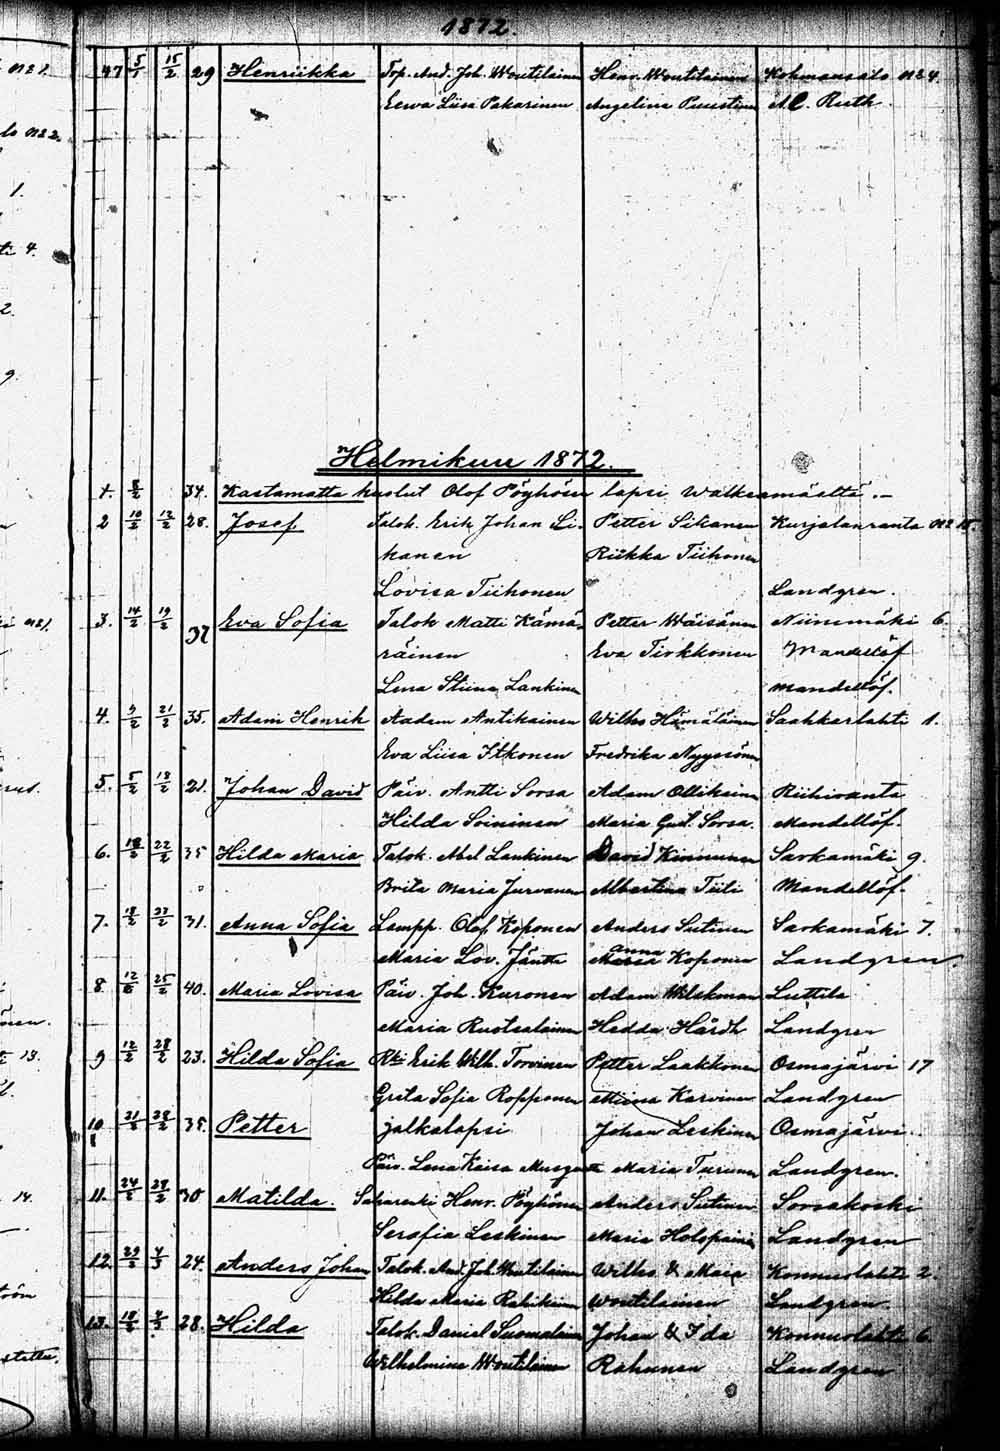 1872.
47 5/1 15/2 29 Henriikka Torp. And. Joh. Woutilainen Henr. Woutilainen Kohmansalo № 4.
Eewa Liisa Pakarinen Angelina Puustinen A. C. Ruth
Helmikuu 1872.
1. 8/2 34. Kastamatta kuollut Olof Pöyhösen lapsi Walkeamäeltä.-
2 10/2 12/2 28. Josef Talok. Erik Johan Li- Petter Sikanen Kurjalanranta № 18.
kanen Riikka Tiihonen
Lovisa Tiihonen Landgren.
3. 14/2 19/2 37 Eva Sofia Talok Matti Kämä- Petter Wäisänen Niinimäki 6.
räinen Eva Tirkkonen Mandellöf
Lena Stiina Lankinen Mandellöf.
4. 9/2 21/2 35. Adam Henrik Aadam Antikainen Wilho Hämäläinen Saahkarlahti 1.
Eva Liisa Itkonen Fredrika Nyyssönen
5. 5/2 18/2 21. Johan David Päiv. Antti Sorsa Adam Ollikainen Riihiranta
Hilda Soininen Maria Gust. Sorsa. Mandellöf.
6. 18/2 22/2 35 Hilda Maria Talok. Abel Lankinen David Kinnunen Sarkamäki 9.
Brita Maria Jurvanen Albertina Tiili Mandellöf.
7. 18/2 23/2 31. Anna Sofia Lampp. Olof Koponen Anders Sutinen Sarkamäki 7.
Maria Lov. Jäntti Anna Koponen Landgren.
8 12/2 25/2 40. Maria Lovisa Päiv. Joh. Kuronen Adam Wilskman Luttila
Maria Ruotsalainen Hedda Hårdh Landgren
9 12/2 28/2 23. Hilda Sofia Rki Erik Wilh. Torvinen Petter Laakkonen Osmajärvi 17
Greta Sofia Ropponen Miina Karvinen Landgren
10 21/2 28/2 35. Petter jalkalapsi Johan Leskinen Osmajärvi.
Päiv. Lena Kaisa Maria Turunen Landgren.
11. 24/2 28/2 30 Matilda. Henr. Pöyhönen Anders Sutinen Sorsakoski
Serafia Leskinen Maria Holopainen Landgren
12. 29/2 4/3 24. Anders Johan Talok. And. Joh. Woutilainen Wilho & Maia Konnuslahti 2.
Hilda Maria Rahikainen Woutilainen Landgren.
13. 18/2 4/3 28. Hilda Talok. Daniel Suomalainen Johan & Ida Konnuslahti 6.
Wilhelmina Woutilainen Rahunen Landgren